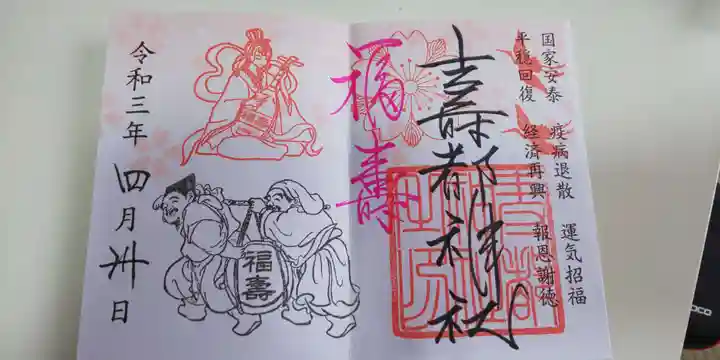 国家安泰　疫病退散　運気招福
平穏回復　経済再興　報恩謝徳
壽都神社
福壽
福壽
令和三年四月卅日